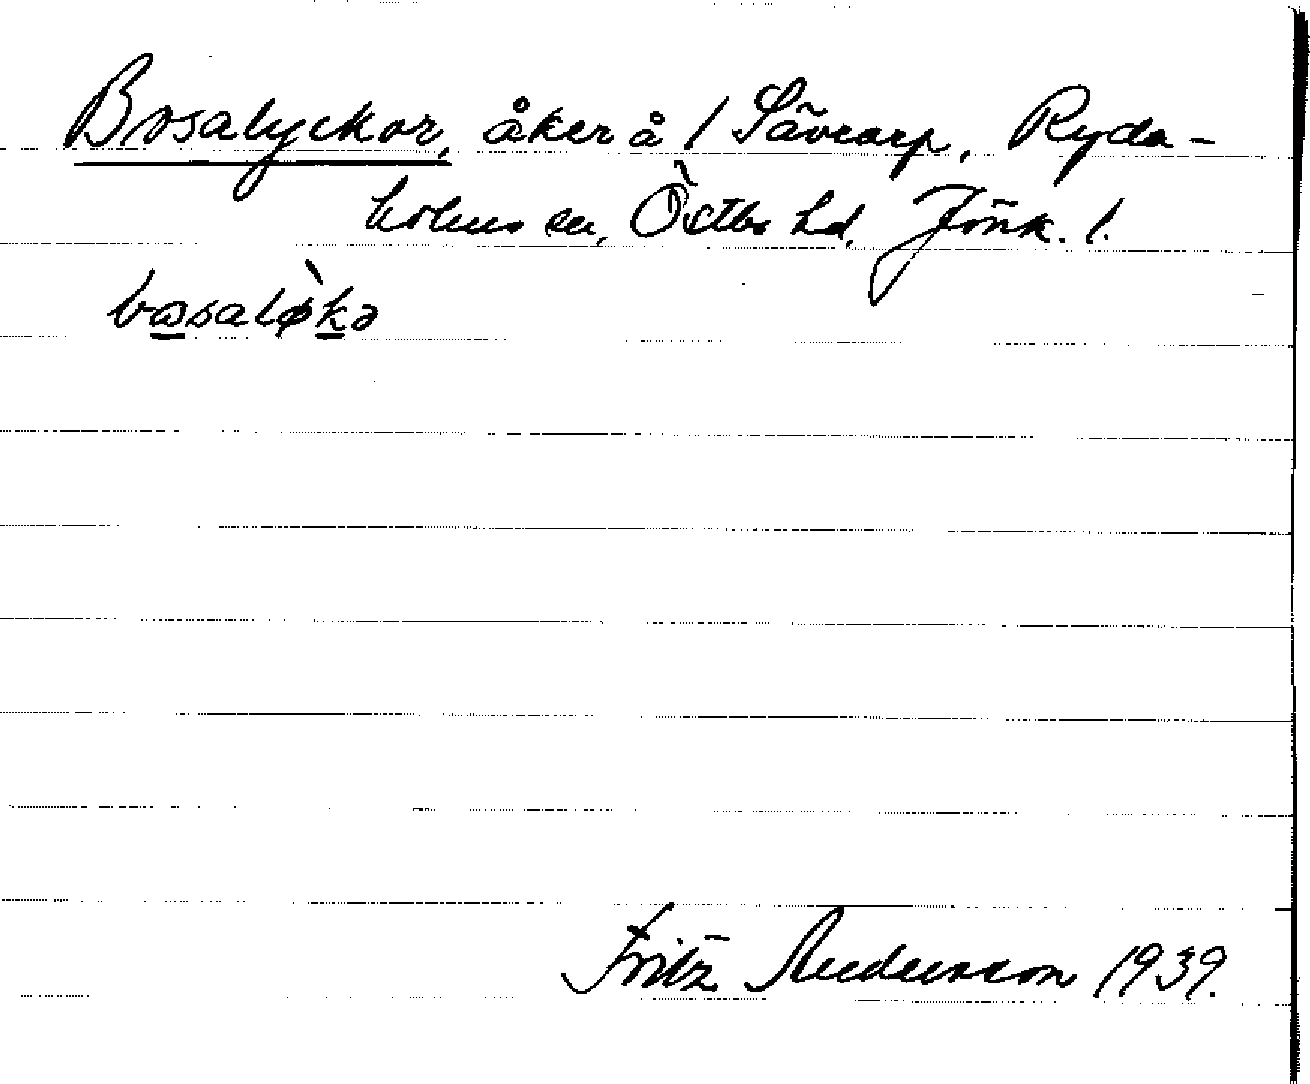 Bosalyckor, åker å / Sävearp, Ryda-
holms sn, Östbo hd, Jönk. l.
bosalø̀kə
Fritz Andersson 1939.